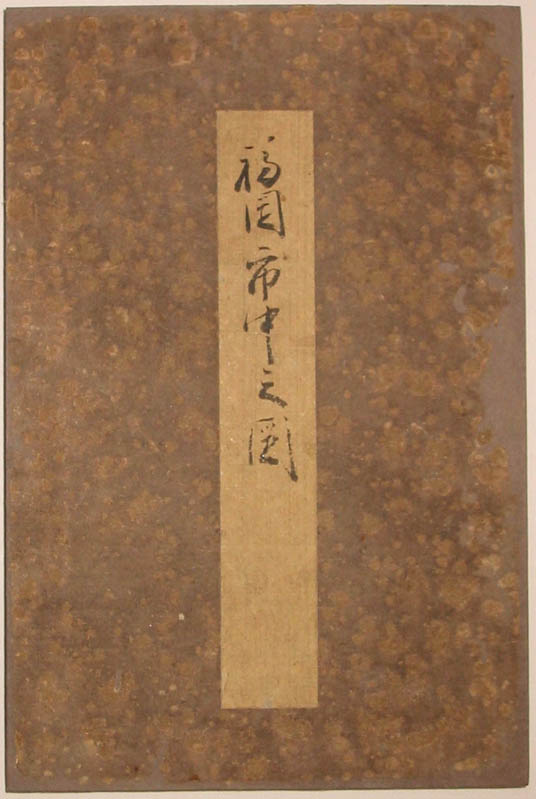 福岡市中之図